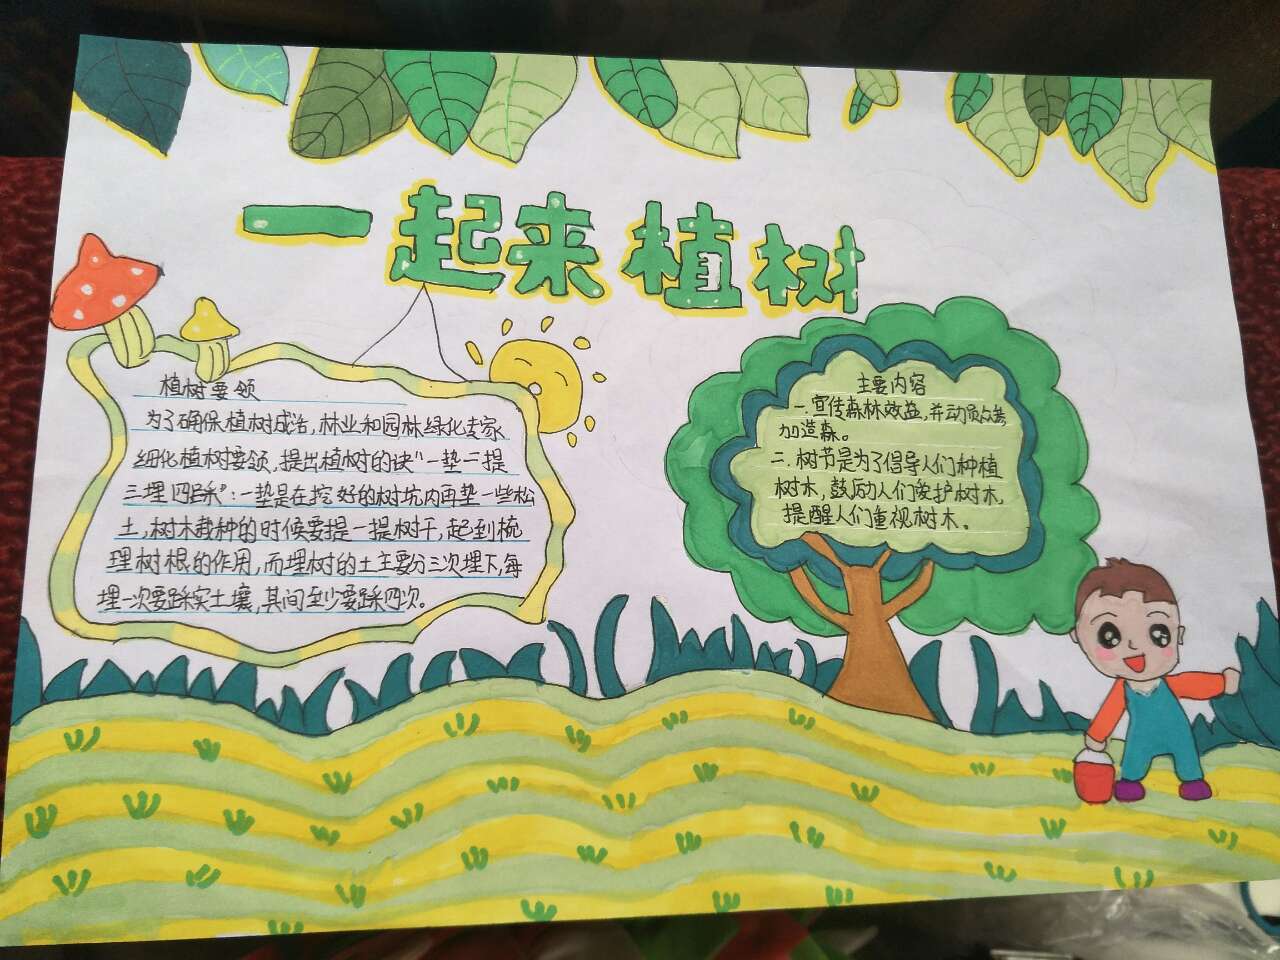 一起来植树
植树要领
为了确保植树成活,林业和园林绿化专家
细化植树要领,提出植树的诀"一垫一提
三埋四踩":一垫是在挖好的树坑内再垫一些松
土,树木栽种的时候要提一提树干,起到梳
理树根的作用,而埋树的土主要分三次埋下,每
埋一次要踩实土壤,其间至少要踩四次。
主要内容
一.宣传森林效益,并动员众参
加造森。
二.树节是为了倡导人们种植
树木,鼓励人们爱护树木,
提醒人们重视树木。